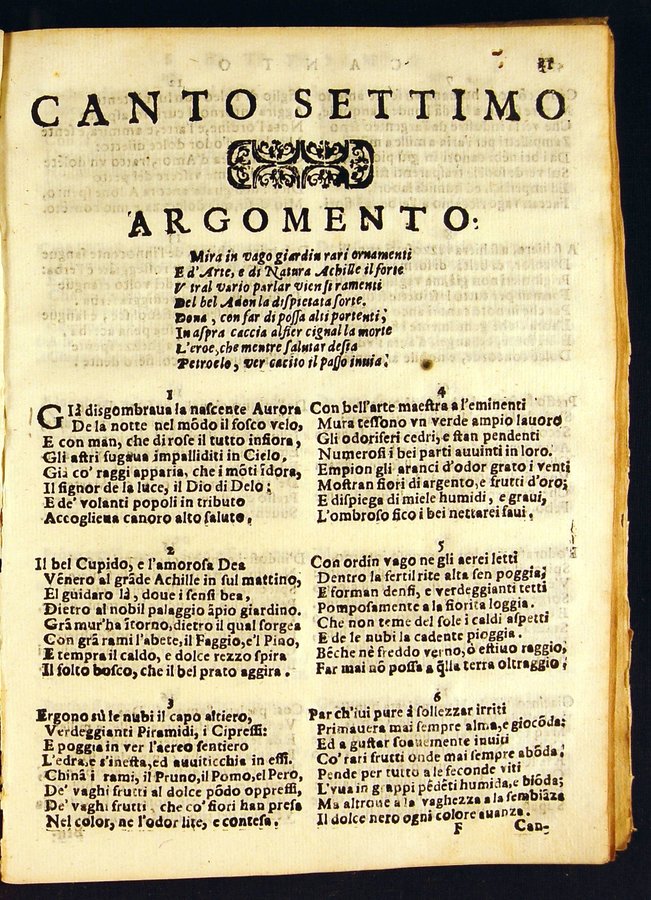 41
CANTO SETTIMO
ARGOMENTO:
Mira in vago giardin rari ornamenti
E d'Arte, e di Natura Achille il forte
V tral vario parlar vien si ramenti
Del bel Adon la dispietata sorte.
Dona, con far di possa alti portenti;
In aspra caccia al fier cignal la morte
L'eroe, che mentre salutar desia
Petroclo, ver cacito il passo inuia.
1
GIà disgombraua la nascente Aurora
De la notte nel mõdo il fosco velo,
E con man, che di rose il tutto infiora,
Gli astri fugaua impalliditi in Cielo.
Già co' raggi apparia, che i mõti ĩdora,
Il signor de la luce, il Dio di Delo;
E de' volanti popoli in tributo
Accoglieua canoro alto saluto.
2
Il bel Cupido, e l'amorosa Dea
Vẽnero al grãde Achille in sul mattino,
El guidaro là, doue i sensi bea,
Dietro al nobil palaggio ãpio giardino.
Grã mur'ha ĩtorno, dietro il qual sorgea
Con grã rami l'abete, il Faggio, e'l Pino,
E tempra il caldo, e dolce rezzo spira
Il folto bosco, che il bel prato aggira.
3
Ergono sù le nubi il capo altiero,
Verdeggianti Piramidi, i Cipressi:
E poggia in ver l'aereo sentiero
L'edra, e s'inesta, ed auuiticchia in essi.
Chinã i rami, il Pruno, il Pomo, el Pero,
De' vaghi frutti al dolce põdo oppressi,
De' vaghi frutti, che co' fiori han presa
Nel color, ne l'odor lite, e contesa.
4
Con bell'arte maestra a l'eminenti
Mura tessono vn verde ampio lauoro
Gli odoriferi cedri, e stan pendenti
Numerosi i bei parti auuinti in loro.
Empion gli aranci d'odor grato i venti
Mostran fiori di argento, e frutti d'oro;
E dispiega di miele humidi, e graui,
L'ombroso fico i bei nettarei faui.
5
Con ordin vago ne gli aerei letti
Dentro la fertil rite alta sen poggia;
E forman densi, e verdeggianti tetti
Pomposamente a la fiorita loggia.
Che non teme del sole i caldi aspetti
E de le nubi la cadente pioggia.
Bẽche nè freddo verno, ò estiuo raggio,
Far mai nõ possa a q̃lla terra oltraggio;
6
Par ch'iui pure à sollezzar irriti
Primauera mai sempre alma, e giocõda;
Ed a gustar soauemente inuiti
Co' rari frutti onde mai sempre abõda;
Pende per tutto a le feconde viti
L'vua in grappi pẽdẽti humida, e biõda;
Ma altroue a la vaghezza a la sembiãza
Il dolce nero ogni colore auanza.
F Can-